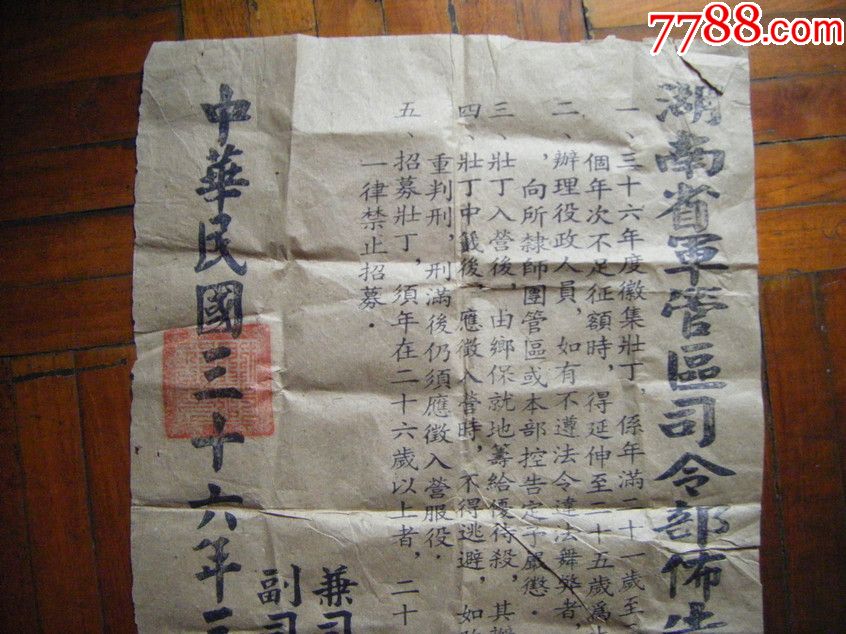 7788.com
湖南省軍管區司令部佈告
一、三十六年度徵集壯丁，係年滿二十一歲至二
個年次不足征額時，得延伸至二十五歲為止
二、辦理役政人員，如有不遵法令違法舞弊者，
，向所隸師團管區或本部控告定予嚴懲．
三、壯丁入營後，由鄉保就地籌給優待穀，其
四、壯丁中籤後，應徵入營時，不得逃避，如
重判刑，刑滿後仍須應徵入營服役．
五、招募壯丁，須年在二十六歲以上者，二十
一律禁止招募．
兼司
副司
中華民國三十六年三